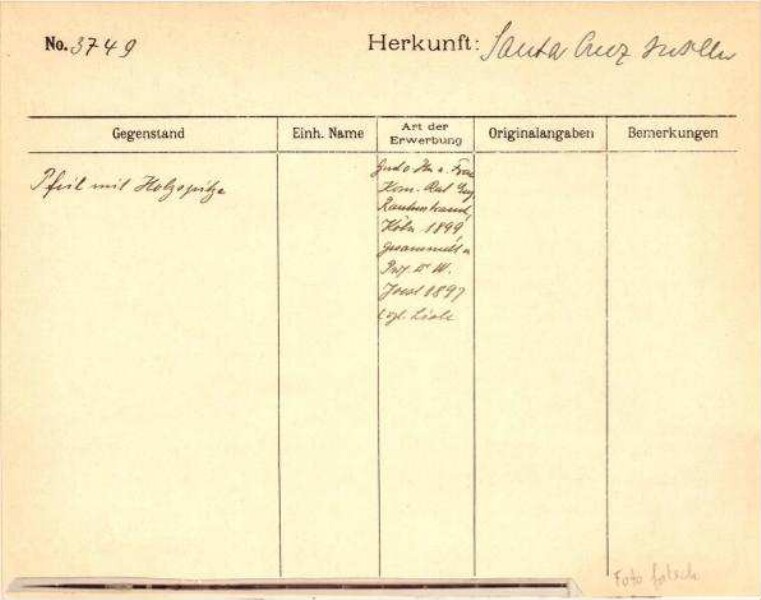 No. 3749 Herkunft: Santa Cruz Inseln
Gegenstand Einh. Name Art der Erwerbung Originalangaben Bemerkungen
Pfeil mit Holzspitze
Frau
Kom. Rat Eug
Rautenstrauch,
Köln 1899,
gesammelt v.
Prof. Dr W.
Joest 1897
(vgl. Liste
Foto falsch